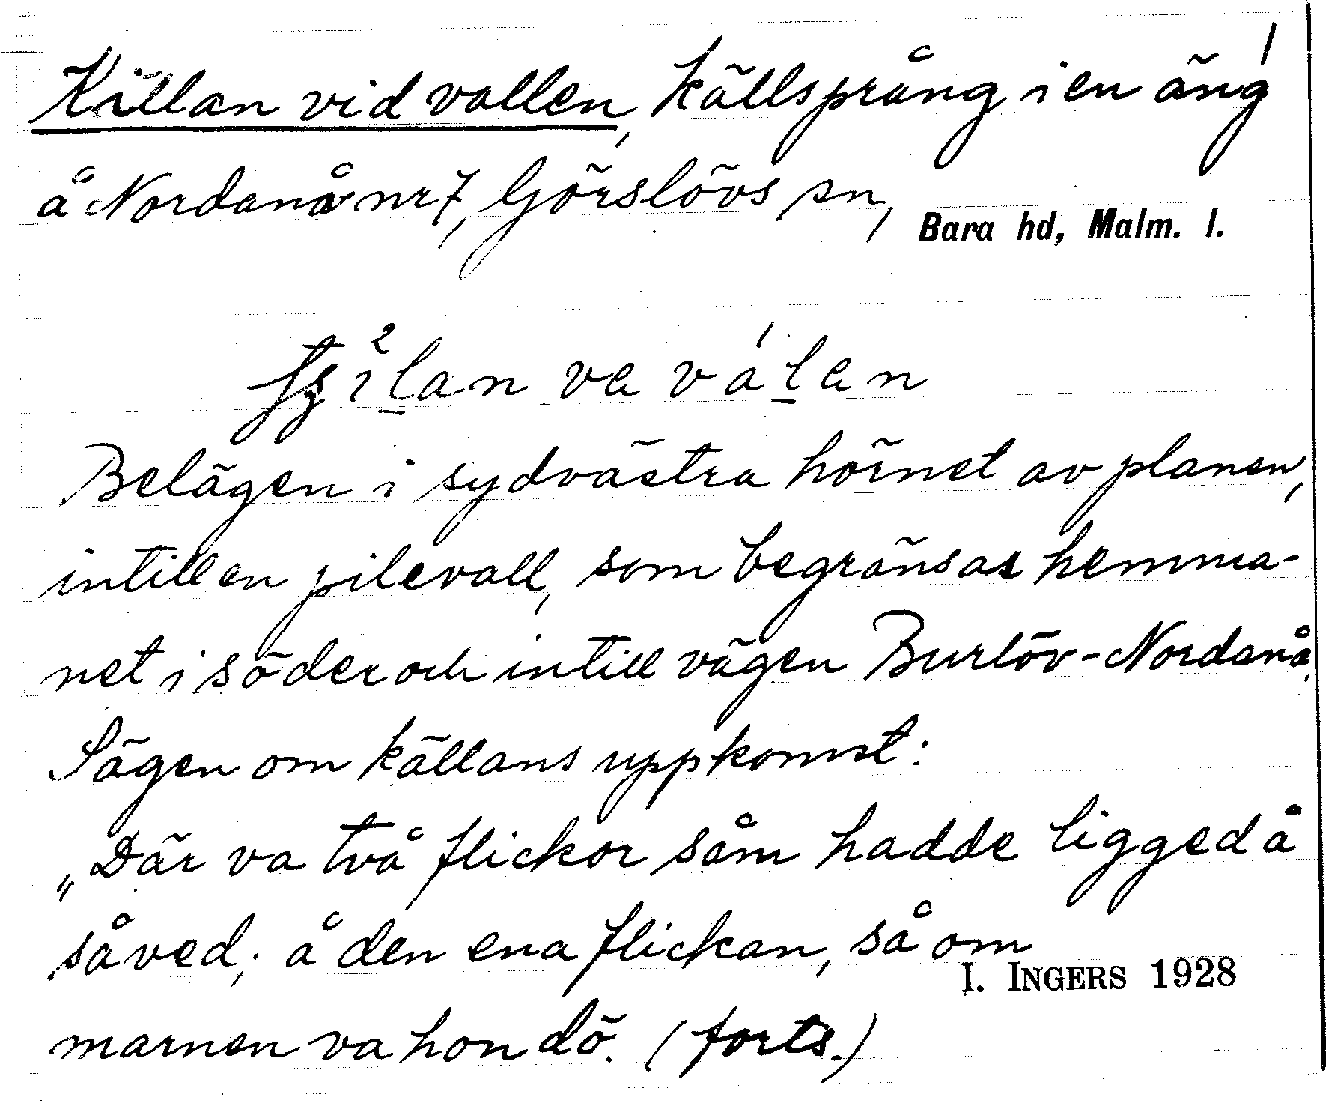 Källan vid vallen, källsprång i en äng
å Nordanå nr 7, Görslövs sn, Bara hd, Malm. l.
va
Belägen i sydvästra hörnet av planen,
intill en pilevall, som begränsar hemma-
net i söder och intill vägen Burlöv-Nordanå.
Sägen om källans uppkomst:
„Där va två flickor såm hadde ligged å
såved; å den ena flickan, så om
marnen va hon dö. (forts.)
I. INGERS 1928